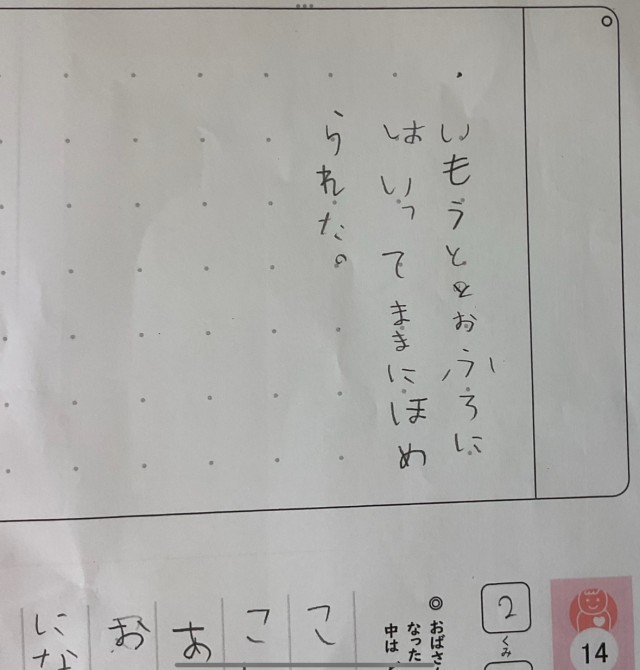 いもうととおふろに
はいってままにほめ
られた。
14
2
くみ
◎おばさ
なった
中は
こ
こ
あ
お
にな